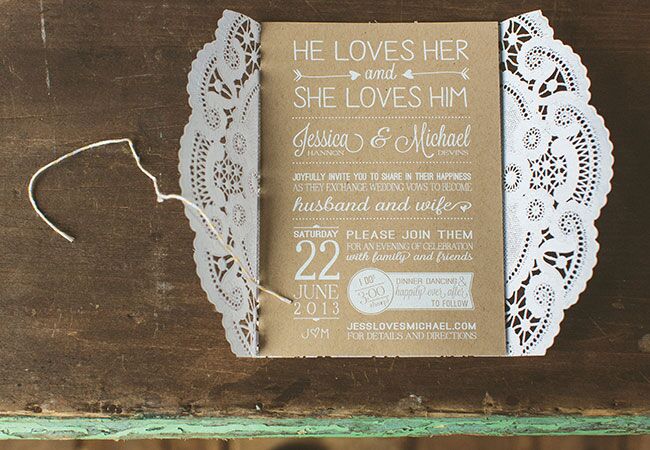 HE LOVES HER
and
SHE LOVES HIM
Jessica & Michael
HANNON DEVINS
JOYFULLY INVITE YOU TO SHARE IN THEIR HAPPINESS
AS THEY EXCHANGE WEDDING VOWS TO BECOME
husband and wife
SATURDAY
22
JUNE
2013
J M
PLEASE JOIN THEM
FOR AN EVENING OF CELEBRATION
with family and friends
I DO
3:00
DINNER DANCING &
happily ever after
TO FOLLOW
JESSLOVESMICHAEL.COM
FOR DETAILS AND DIRECTIONS